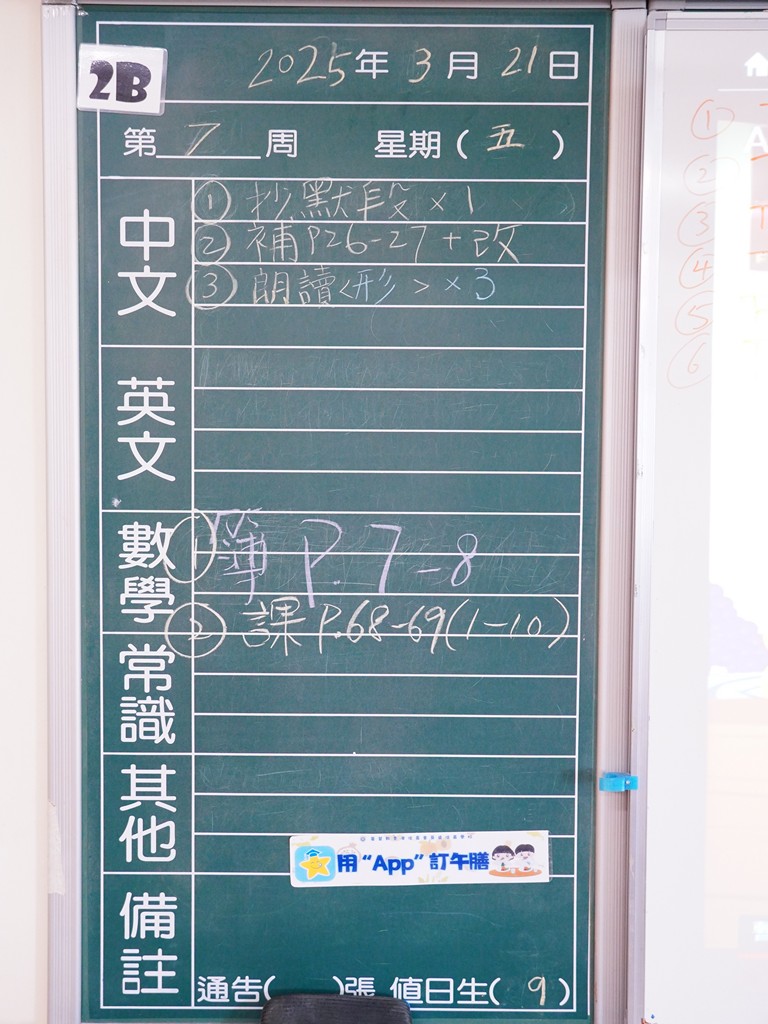 2B
2025年3月21日
第7周 星期(五)
中文
① 抄默段 x 1
② 補P26-27+改
③ 朗讀<形>x3
英文
數學
① 簿 P.7-8
② 課 P.68-69(1-10)
常識
其他
用“App”訂午膳
備註
通告( )張 值日生(9)
①
②
③
④
⑤
⑥